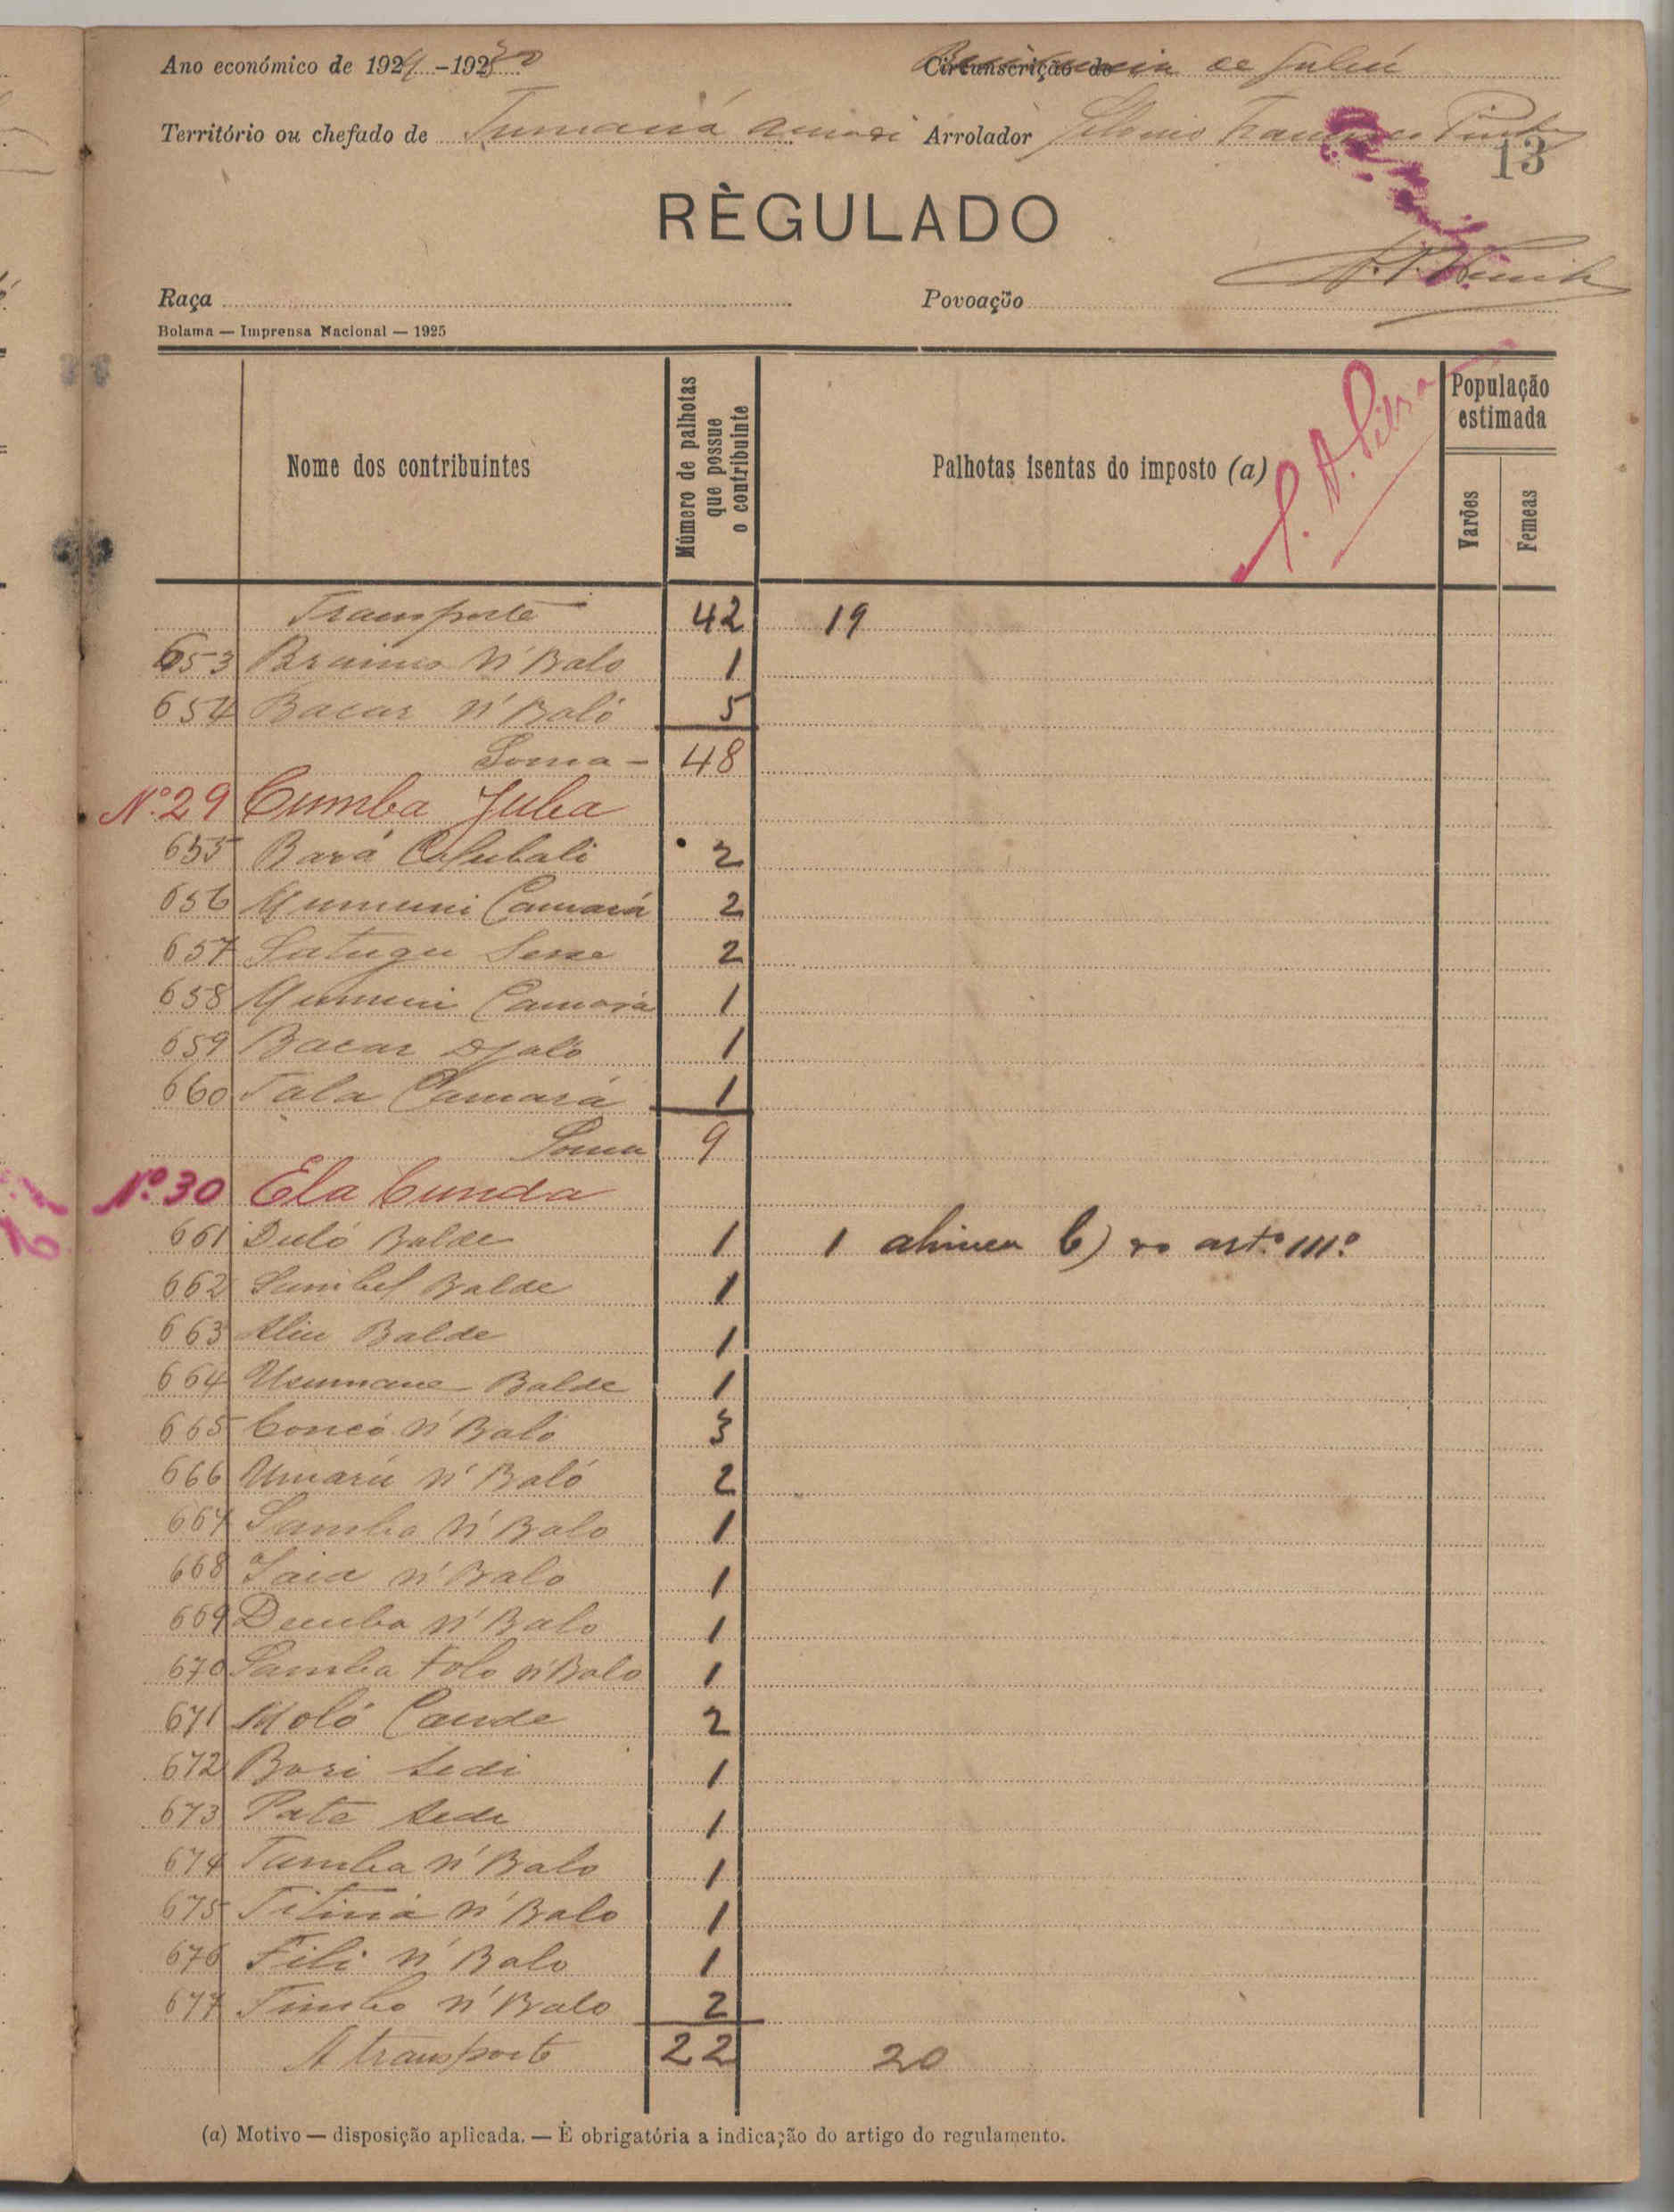 Ano económico de 1929-1930
Circunscrição de
Território ou chefado de Tumaná Arrolador Francisco
13
RÈGULADO
Raça Povoação
Bolama — Imprensa Nacional — 1925
Nome dos contribuintes
Múmero de palhotas que possue o contribuinte
Palhotas isentas do imposto (a)
População estimada
Varões
Femeas
Transporte 42 19
653 Braima N'Balo 1
654 Bacar N'Baló 5
Soma - 48
Nº 29 Cumba Juba
655 Bará 2
656 Mumuni Camará 2
657 2
658 Mumuni Camará 1
659 Bacar Djaló 1
660 Tala Camará 1
Soma 9
Nº 30 Ela Cunda
661 Duló Balde 1 1 alinea b) do artº 111º
662 Balde 1
663 Aliu Balde 1
664 Usumane Balde 1
665 Concó N'Baló 3
666 Umarú N'Baló 2
667 Samba N'Balo 1
668 N'Balo 1
669 Demba N'Balo 1
670 Samba Folo N'Balo 1
671 Moló Cande 2
672 Bori Sedi 1
673 Pate Sedi 1
674 Tamba N'Balo 1
675 N'Balo 1
676 Fili N'Balo 1
677 Timbo N'Balo 2
A transporte 22 20
(a) Motivo — disposição aplicada. — É obrigatória a indicação do artigo do regulamento.